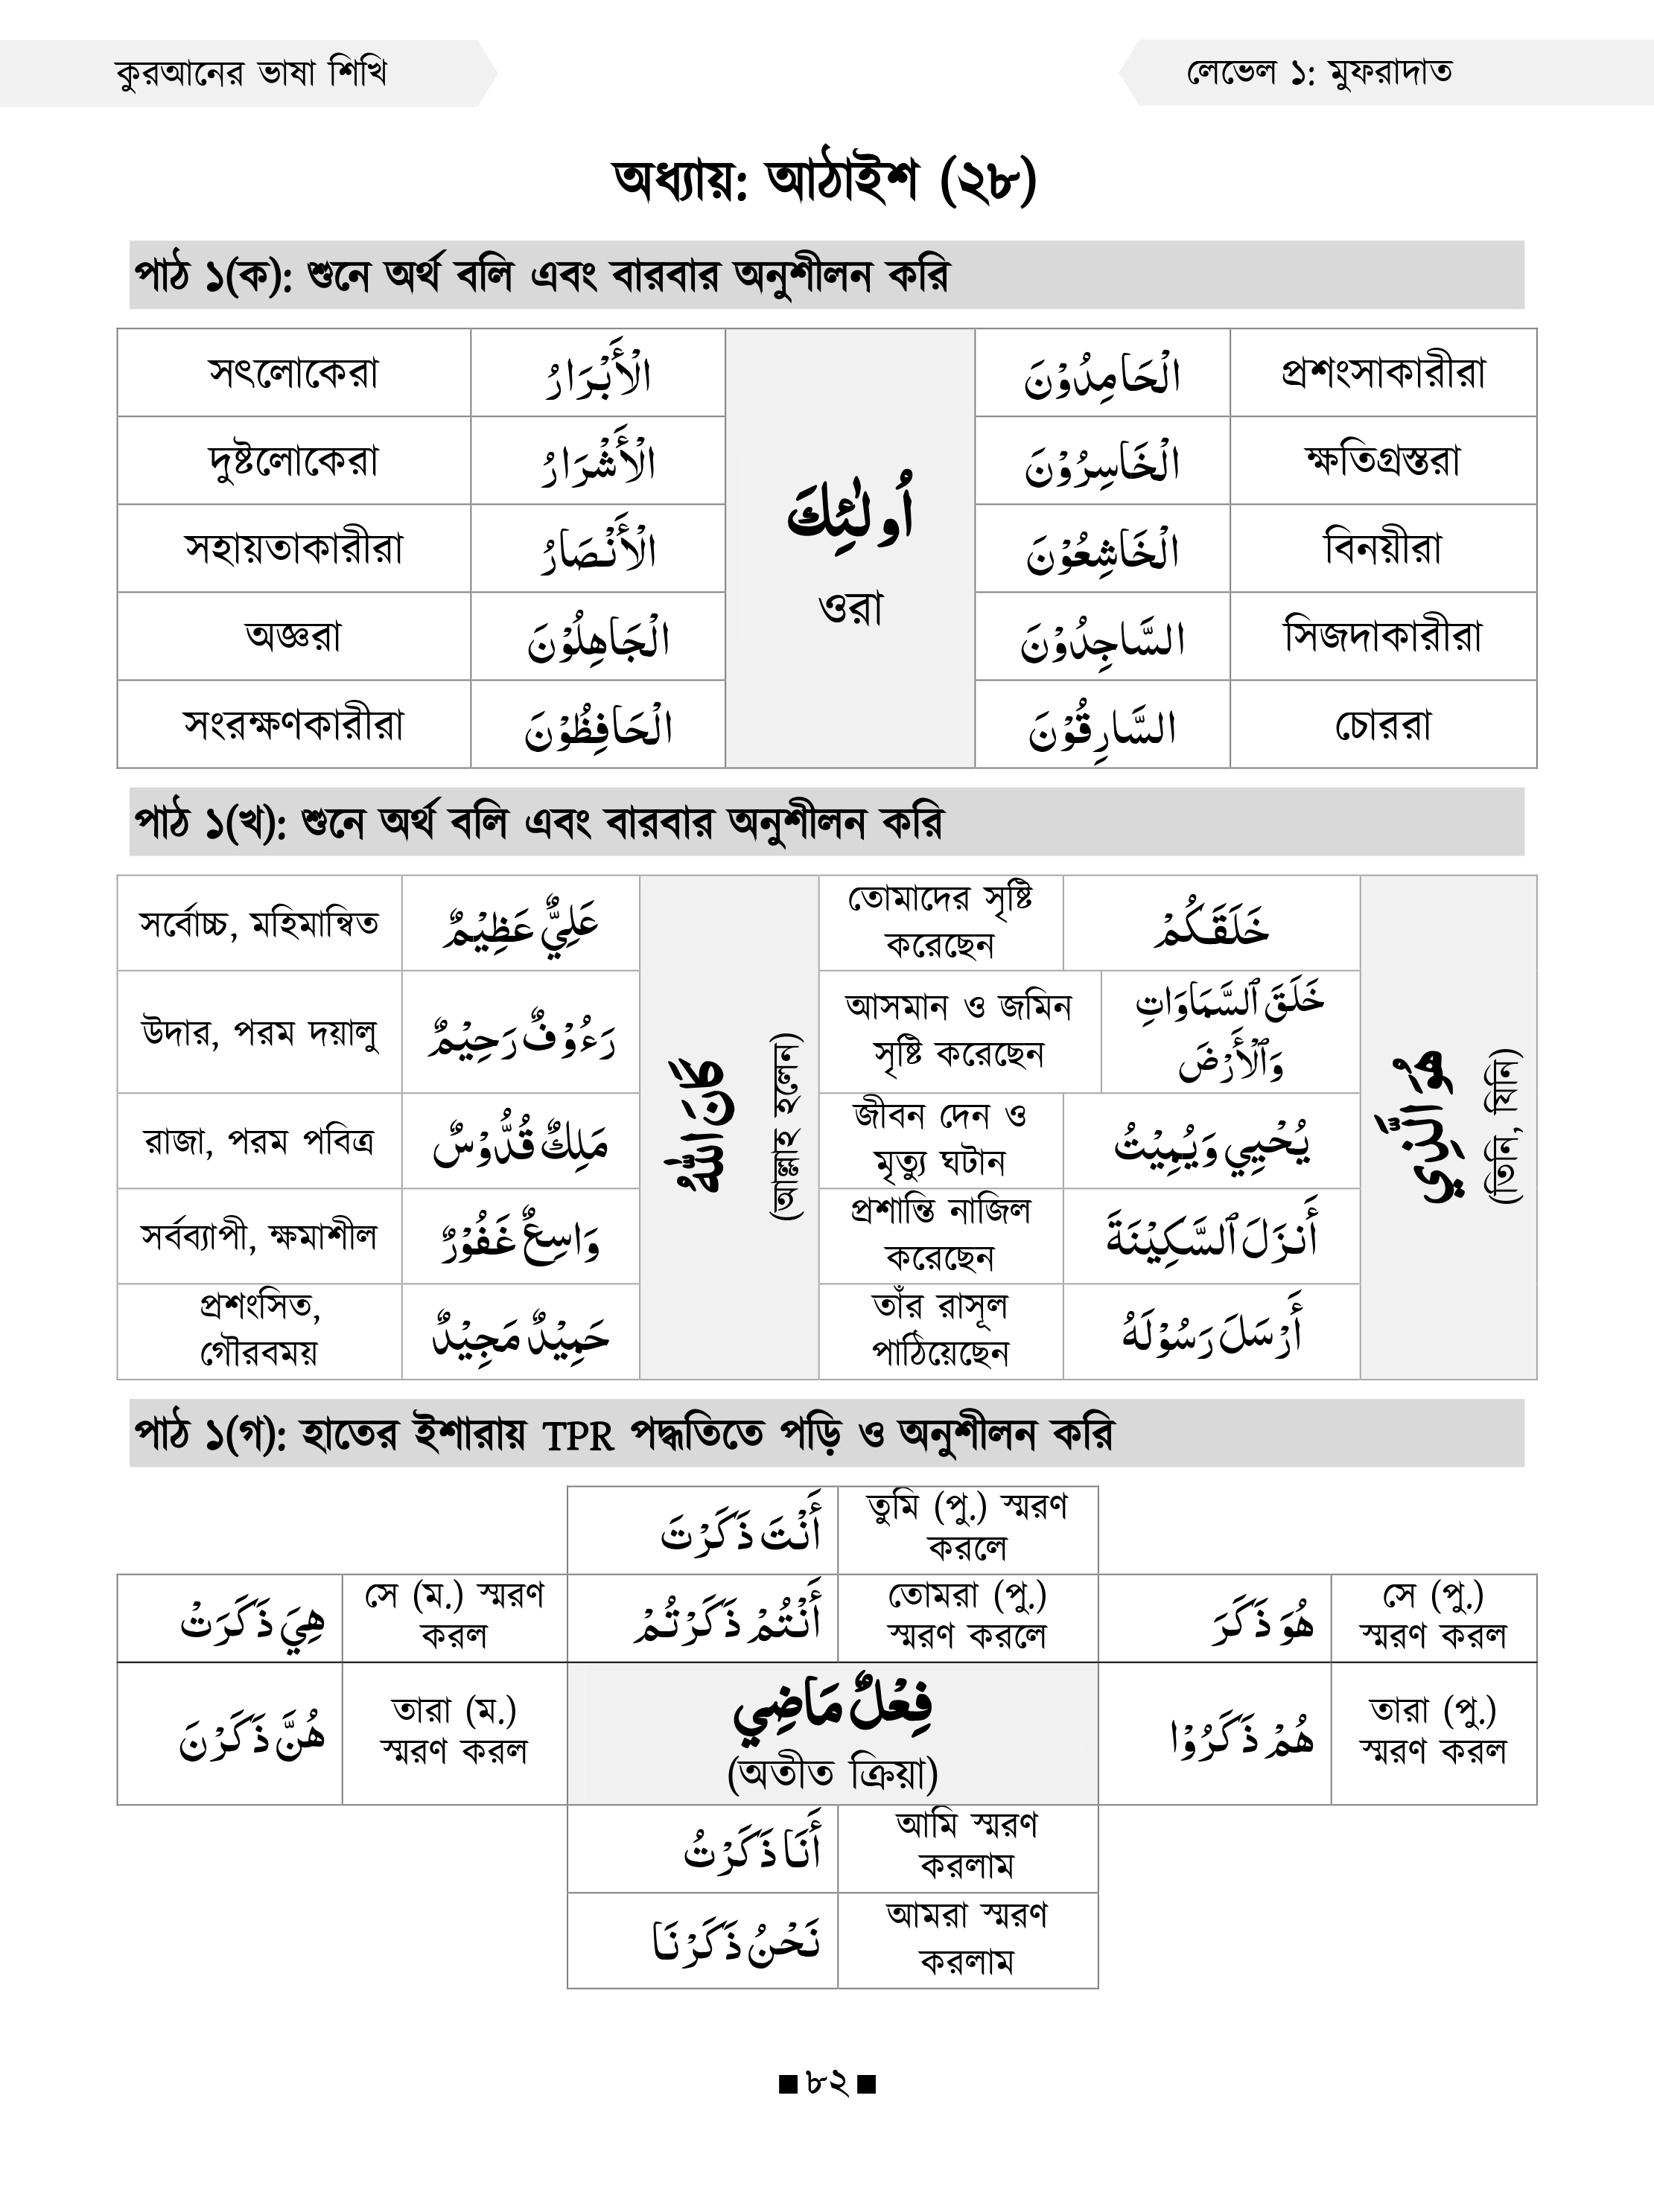 কুরআনের ভাষা শিখি
লেভেল ১: মুফরাদাত
অধ্যায়: আঠাইশ (২৮)
পাঠ ১(ক): শুনে অর্থ বলি এবং বারবার অনুশীলন করি
সৎলোকেরা الْأَبْرَارُ الْحَامِدُوْنَ প্রশংসাকারীরা
দুষ্টলোকেরা الْأَشْرَارُ الْخَاسِرُوْنَ ক্ষতিগ্রস্তরা
সহায়তাকারীরা الْأَنْصَارُ اُولٰئِكَ الْخَاشِعُوْنَ বিনয়ীরা
অজ্ঞরা الْجَاهِلُوْنَ ওরা السَّاجِدُوْنَ সিজদাকারীরা
সংরক্ষণকারীরা الْحَافِظُوْنَ السَّارِقُوْنَ চোররা
পাঠ ১(খ): শুনে অর্থ বলি এবং বারবার অনুশীলন করি
সর্বোচ্চ, মহিমান্বিত عَلِيٌّ عَظِيْمٌ
উদার, পরম দয়ালু رَءُوْفٌ رَحِيْمٌ
রাজা, পরম পবিত্র مَلِكٌ قُدُّوْسٌ
সর্বব্যাপী, ক্ষমাশীল وَاسِعٌ غَفُوْرٌ
প্রশংসিত,
গৌরবময় حَمِيْدٌ مَجِيْدٌ
كَانَ اللّٰهُ
(আল্লাহ হলেন)
তোমাদের সৃষ্টি
করেছেন خَلَقَكُمْ
আসমান ও জমিন
সৃষ্টি করেছেন
خَلَقَ ٱلسَّمَاوَاتِ
وَٱلْأَرْضَ
জীবন দেন ও
মৃত্যু ঘটান يُحْيِي وَيُمِيْتُ
প্রশান্তি নাজিল
করেছেন أَنزَلَ ٱلسَّكِيْنَةَ
তাঁর রাসূল
পাঠিয়েছেন أَرْسَلَ رَسُوْلَهُ
هُوَ الَّذِي
(তিনি, যিনি)
পাঠ ১(গ): হাতের ইশারায় TPR পদ্ধতিতে পড়ি ও অনুশীলন করি
أَنْتَ ذَكَرْتَ
তুমি (পু.) স্মরণ
করলে
هِيَ ذَكَرَتْ
সে (ম.) স্মরণ
করল
أَنْتُمْ ذَكَرْتُمْ
তোমরা (পু.)
স্মরণ করলে
هُوَ ذَكَرَ
সে (পু.)
স্মরণ করল
هُنَّ ذَكَرْنَ
তারা (ম.)
স্মরণ করল
فِعْلٌ مَاضِي
(অতীত ক্রিয়া)
هُمْ ذَكَرُوْا
তারা (পু.)
স্মরণ করল
أَنَا ذَكَرْتُ
আমি স্মরণ
করলাম
نَحْنُ ذَكَرْنَا
আমরা স্মরণ
করলাম
■ ৮২ ■